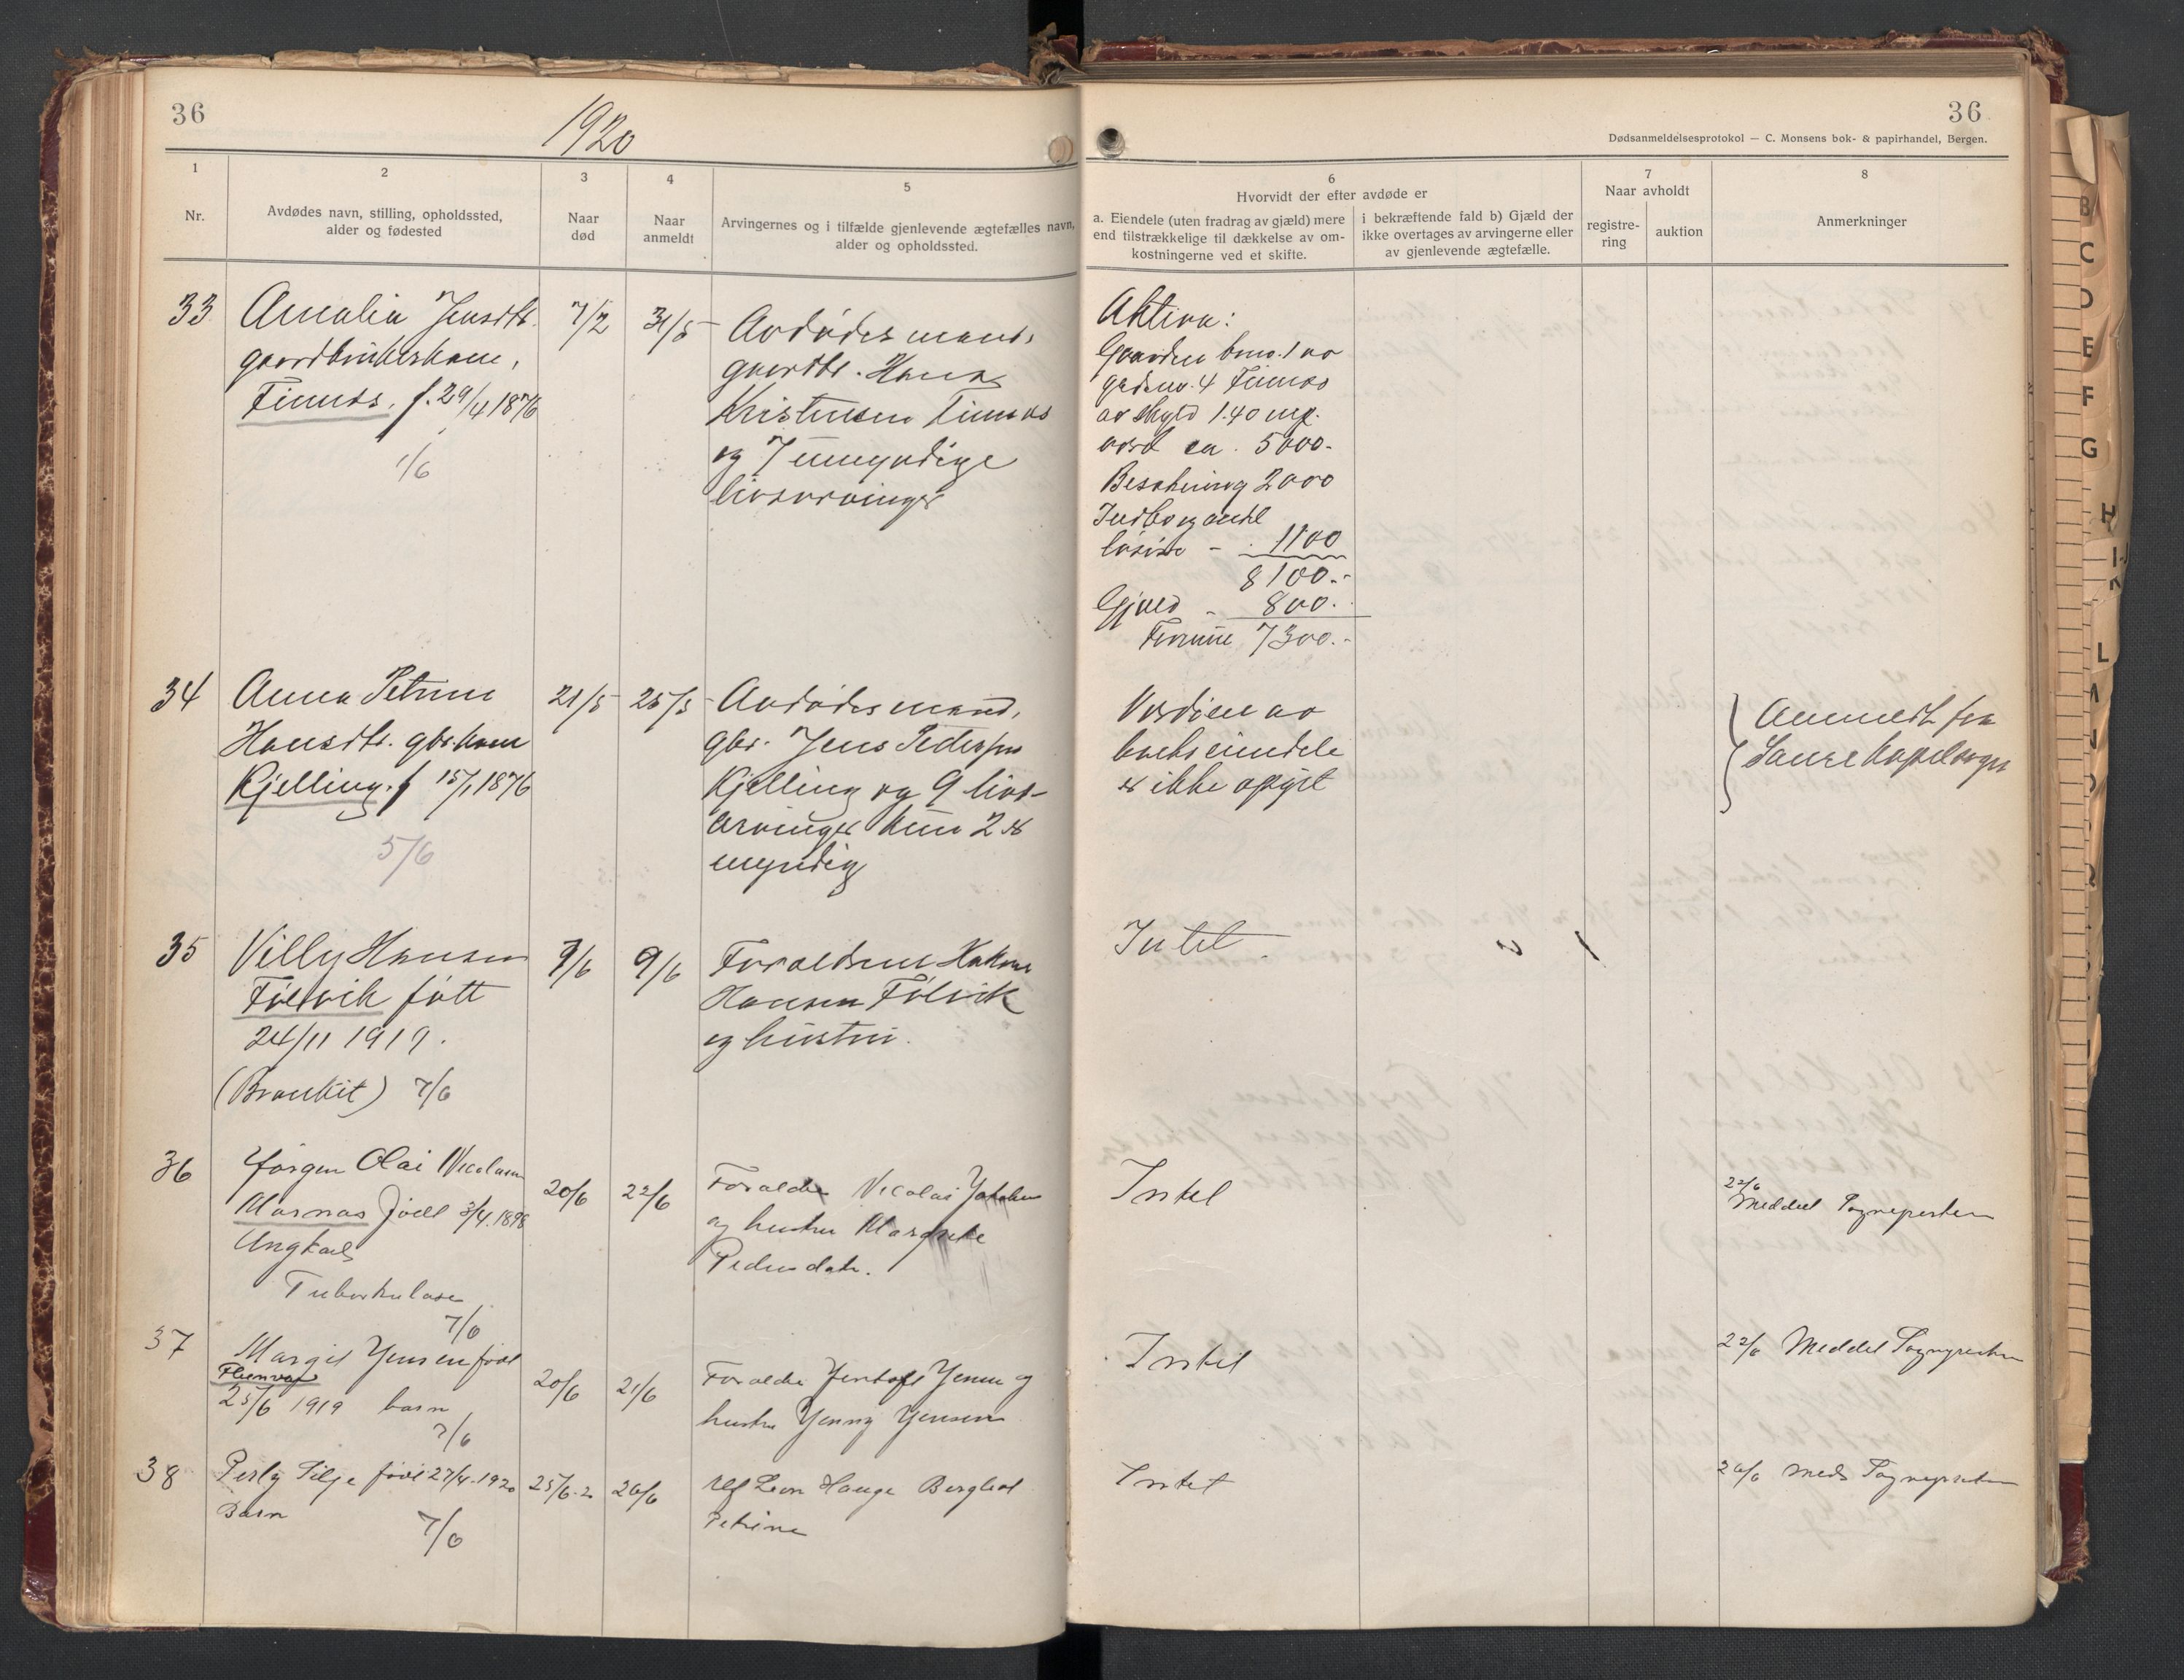 36
1920
1
2
3
4
5
Nr.
Avdødes navn, stilling, opholdssted,
alder og fødested
Naar
død
Naar
anmeldt
Arvingernes og i tilfælde gjenlevende ægtefælles navn,
alder og opholdssted.
36
Dødsanmeldelsesprotokol — C. Monsens bok- & papirhandel, Bergen.
6
7
8
Hvorvidt der efter avdøde er
Naar avholdt
a. Eiendele (uten fradrag av gjæld) mere
end tilstrækkelige til dækkelse av om-
kostningerne ved et skifte.
i bekræftende fald b) Gjæld der
ikke overtages av arvingerne eller
av gjenlevende ægtefælle.
registre-
ring
auktion
Anmerkninger
33
Amalia Jensdtr.
gaardbrukerkone,
f. 29/4 1876
1/6
7/2
31/5
Avdødes mand,
gaardbr. Hans
Kristensen
og 7 umyndige
livsarvinger
Aktiva:
Gaarden bno. 1 av
gardsno. 4
av skyld 1.40 mrk.
værd ca. 5000.-
Besetning 2000
Indbo og andet
løsøre - 1100
8100.-
Gjæld - 800.-
Formue 7300.-
34
Anna Petrine
Hansdtr. gbr.kone
Kjelling. f 15/1 1876
5/6
21/5
25/5
Avdødes mand,
gbr. Jens Pedersen
Kjelling og 9 livs-
arvinger kun 2 er
myndig
Værdien av
boets eiendele
er ikke opgit
Anmeldt fra
35
Villy Hansen
Følvik født
24/11 1919.
(Bronkit) 7/6
7/6
9/6
Forældrene Hakon
Hansen Følvik
og hustru.
Intet
36
Jørgen Olai Nicolaisen
Marnas født 3/4. 1898
Ungkarl
Tuberkulose
7/6
20/6
22/6
Forældre Nicolai Jakobsen
og hustru Margrete
Pedersdatr.
Intet
22/6
Meddelt Sognepresten
37
Margit Jensen født
25/6 1919 barn
7/6
20/6
21/6
Forældre Jentoft Jensen og
hustru Jenny Jensen
Intet
22/6 Meddel Sognepresten
38
Perly Silje født 27/4. 1920
Barn
7/6
25/6.20
26/6
Leon Hauge Bergliot
Petrine
Intet
26/6 Medd Sognepresten
B
C
D
E
F
G
H
L